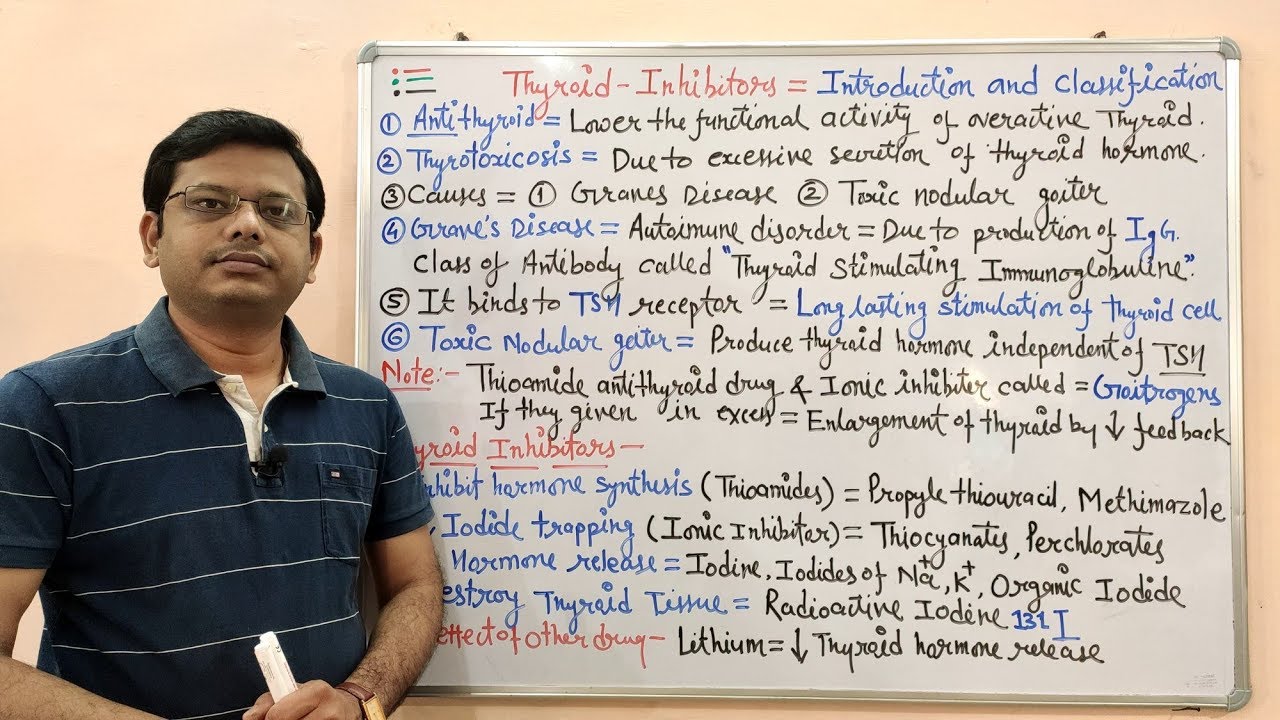 Thyroid - Inhibitors = Introduction and Classification
① Antithyroid = Lower the functional activity of overactive Thyroid.
② Thyrotoxicosis = Due to excessive secretion of thyroid hormone.
③ Causes = ① Graves Disease ② Toxic nodular goiter
④ Grave's Disease = Autoimune disorder = Due to production of IgG.
Class of Antibody called "Thyroid Stimulating Immunoglobuline".
⑤ It binds to TSH receptor = Long lasting stimulation of thyroid cell
⑥ Toxic Nodular goiter = Produce thyroid hormone independent of TSH
Note:- Thioamide antithyroid drug & Ionic inhibiter called = Goitrogens
If they given in excess = Enlargement of thyroid by ↓ feedback
yroid Inhibitors -
nhibit hormone synthesis (Thioamides) = Propyle thiouracil, Methimazole
Iodide trapping (Ionic Inhibitor) = Thiocyanates, Perchlorates
Hormone release = Iodine, Iodides of Na+, K+, Organic Iodide
estroy Thyroid Tissue = Radioactive Iodine 131 I
effect of other drug - Lithium = ↓ Thyroid hormone release